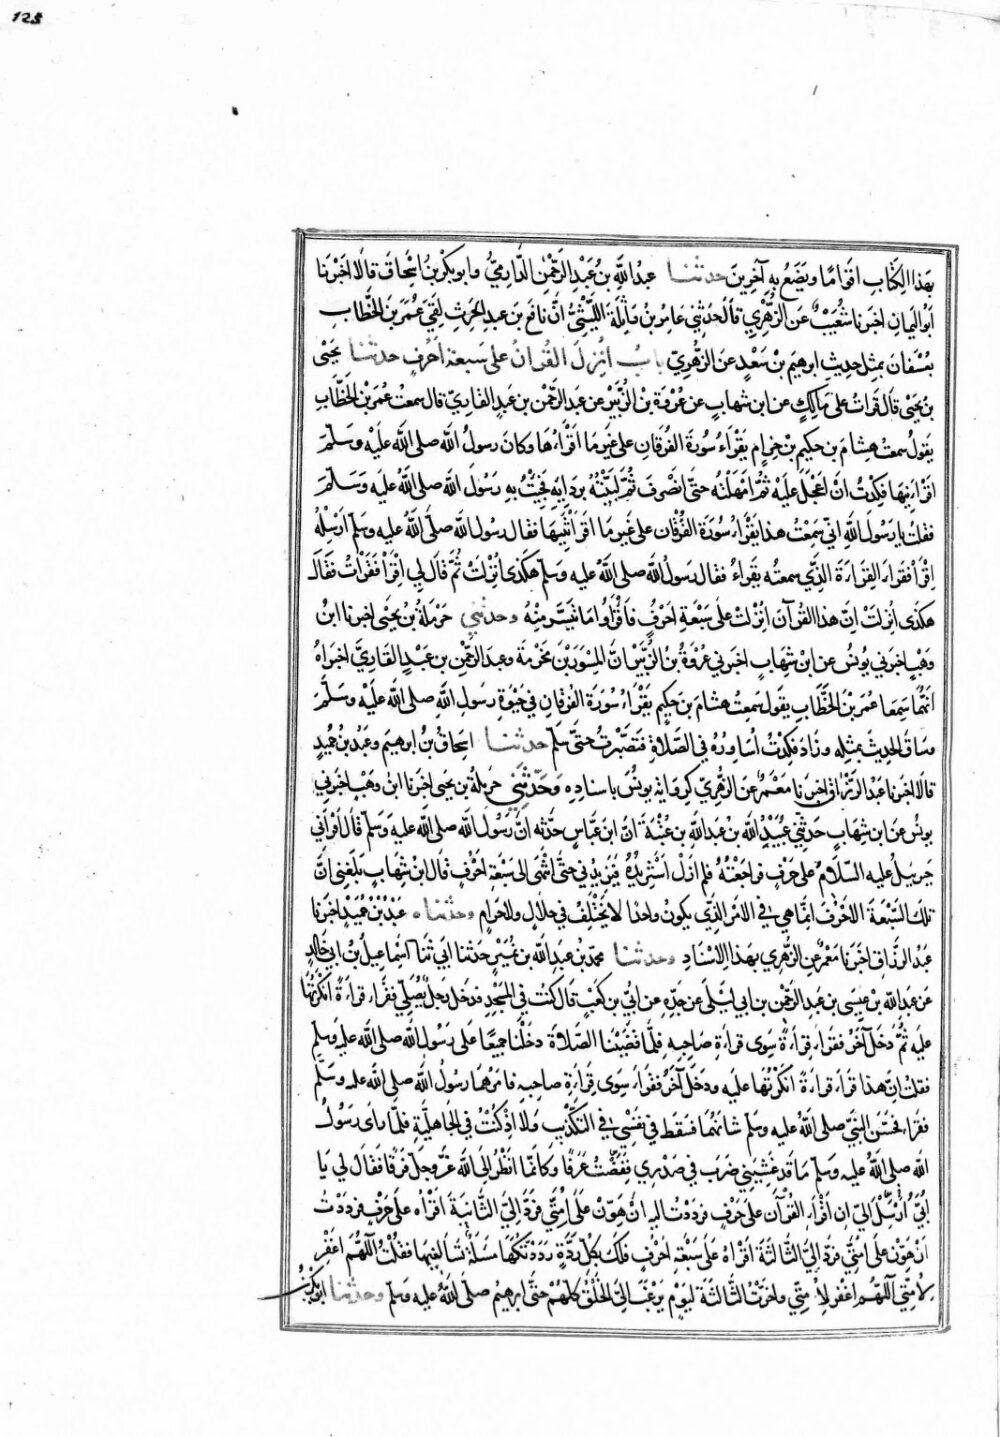 125
بهذا الكتاب اقواما ويضع به آخرين حدثنا عبد الله بن عبد الرحمن الدارمي وابو بكر بن اسحاق قالا اخبرنا
ابو اليمان اخبرنا شعيب عن الزهري قال حدثني عامر بن واثلة الليثي ان نافع بن عبد الحرث لقي عمر بن الخطاب
بعسفان بمثل حديث ابرهيم بن سعد عن الزهري باب انزل القران على سبعة احرف حدثنا يحيى
بن يحيى قال قرات على مالك عن ابن شهاب عن عروة بن الزبير عن عبد الرحمن بن عبد القاري قال سمعت عمر بن الخطاب
يقول سمعت هشام بن حكيم بن حزام يقراء سورة الفرقان على غير ما اقراءها وكان رسول الله صلى الله عليه وسلم
اقراءنيها فكدت ان اعجل عليه ثم امهلته حتى انصرف ثم لببته بردايه فجئت به رسول الله صلى الله عليه وسلم
فقلت يا رسول الله اني سمعت هذا يقراء سورة الفرقان على غير ما اقراتنيها فقال رسول الله صلى الله عليه وسلم ارسله
اقرا فقرا القراءة الذي سمعته يقراء فقال رسول الله صلى الله عليه وسلم هكذى انزلت ثم قال لي اقرا فقرات فقال
هكذى انزلت ان هذا القرآن انزلت على سبعة احرف فاقراوا ما تيسر منه وحدثني حرملة بن يحيى اخبرنا ابن
وهب اخبرني يونس عن ابن شهاب اخبرني عروة بن الزبير ان المسور بن مخرمة وعبد الرحمن بن عبد القاري اخبراه
انهما سمعا عمر بن الخطاب يقول سمعت هشام بن حكيم يقراء سورة الفرقان في حيوة رسول الله صلى الله عليه وسلم
وساق الحديث بمثله وزاد فكدت اساوره في الصلاة فتصبرت حتى سلم حدثنا اسحاق بن ابرهيم وعبد بن حميد
قالا اخبرنا عبد الرزاق اخبرنا معمر عن الزهري كرواية يونس باسناده وحدثني حرملة بن يحيى اخبرنا ابن وهب اخبرني
يونس عن ابن شهاب حدثني عبيد الله بن عبد الله بن عتبة ان ابن عباس حدثه ان رسول الله صلى الله عليه وسلم قال اقراني
جبريل عليه السلام على حرف فراجعته فلم ازل استزيده فيزيدني حتى انتهى الى سبعة احرف قال ابن شهاب بلغني ان
تلك السبعة الاحرف انما هي في الامر الذي يكون واحدا لا يختلف في حلال ولا حرام وحدثناه عبد بن حميد اخبرنا
عبد الرزاق اخبرنا معمر عن الزهري بهذا الاسناد وحدثنا محمد بن عبد الله بن نمير حدثنا ابي ثنا اسماعيل بن ابي خالد
عن عبد الله بن عيسى بن عبد الرحمن بن ابي ليلى عن جده عن ابي بن كعب قال كنت في المسجد فدخل رجل يصلي فقراء قراءة انكرتها
عليه ثم دخل آخر فقراء قراءة سوى قراءة صاحبه فلما قضينا الصلاة دخلنا جميعا على رسول الله صلى الله عليه وسلم
فقلت ان هذا قراء قراءة انكرتها عليه ودخل آخر فقراء سوى قراءة صاحبه فامرهما رسول الله صلى الله عليه وسلم
فقراء فحسن النبي صلى الله عليه وسلم شانهما فسقط في نفسي في التكذيب ولا اذ كنت في الجاهلية فلما راى رسول
الله صلى الله عليه وسلم ما قد غشيني ضرب في صدري ففضت عرقا وكانما انظر الى الله عز وجل فرقا فقال لي يا
ابي ارسل الي ان اقراء القرآن على حرف فرددت اليه ان هون على امتي فرد الي الثانية اقراه على حرف فرددت
ان هون على امتي فرد الي الثالثة اقراه على سبعة احرف فلك بكل ردة رددتكها مسلة تسالنيها فقلت اللهم اغفر
لامتي اللهم اغفر لامتي واخرت الثالثة ليوم يرغب الي الخلق كلهم حتى ابرهيم صلى الله عليه وسلم وحدثنا ابو بكر بن